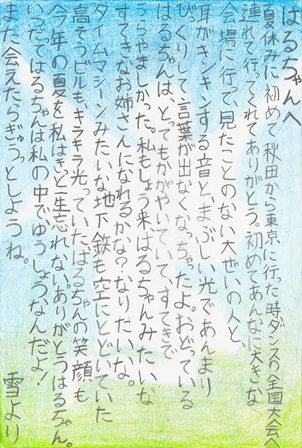 はるちゃんへ
夏休みに初めて秋田から東京に行った時ダンスの全国大会へ
連れて行ってくれてありがとう。初めてあんなに大きな
会場に行って、見たことのない大ぜいの人と、
耳がキンキンする音と、まぶしい光であんまり
びっくりして言葉が出なくなっちゃったよ。おどっている
はるちゃんは、とってもかがやいていて、すてきで
うらやましかった。私もしょう来はるちゃんみたいな
すてきなお姉さんになれるかな?なりたいな。
タイムマシーンみたいな地下鉄も空にとどいていた
高そうビルも、キラキラ光っていたはるちゃんの笑顔も
今年の夏を私はきっと一生忘れない。ありがとうはるちゃん。
いつだってはるちゃんは私の中でゆうしょうなんだよ!
また会えたらぎゅっとしようね。
雪より